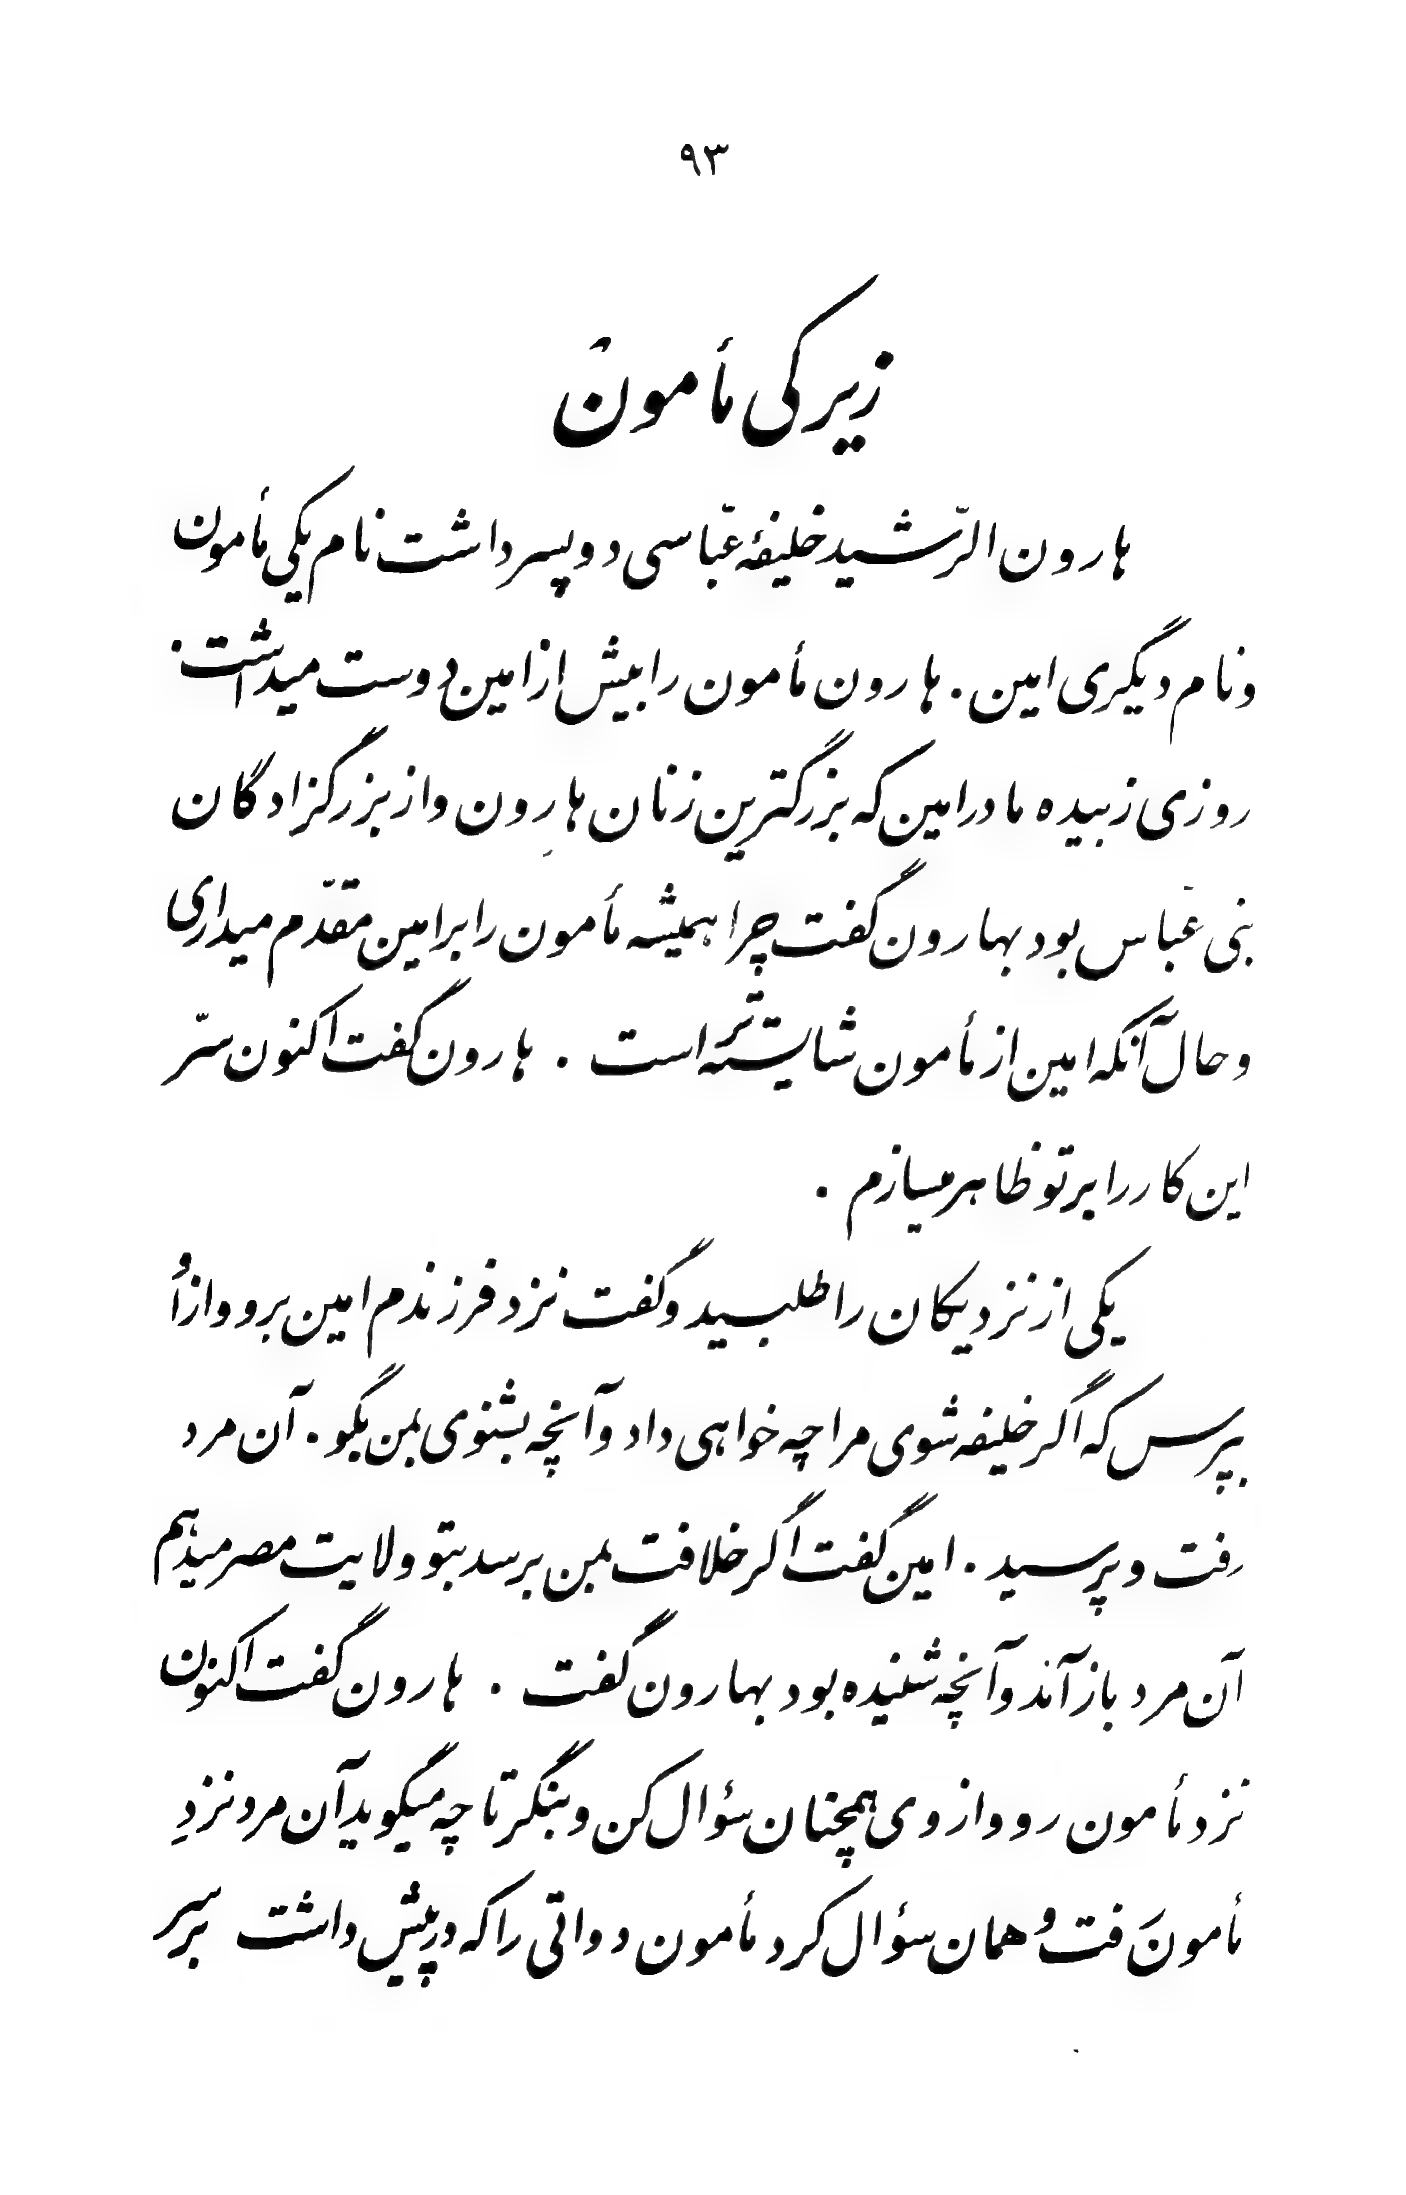 ۹۳
زیرکی مأمون
هارون الرّشید خلیفهٔ عبّاسی دو پسر داشت نام یکی مأمون
و نام دیگری امین . هارون مأمون را بیش از امین دوست میداشت .
روزی زبیده مادر امین که بزرگترین زنان هارون و از بزرگزادگان
بنی عبّاس بود بهارون گفت چرا همیشه مأمون را بر امین مقدّم میداری
و حال آنکه امین از مأمون شایسته‌تر است . هارون گفت اکنون سرّ
این کار را بر تو ظاهر میسازم .
یکی از نزدیکان را طلبید و گفت نزد فرزندم امین برو و از اُو
بپرس که اگر خلیفه شوی مرا چه خواهی داد و آنچه بشنوی بمن بگو . آن مرد
رفت و پرسید . امین گفت اگر خلافت بمن برسد بتو ولایت مصر میدهم
آن مرد باز آمد و آنچه شنیده بود بهارون گفت . هارون گفت اکنون
نزد مأمون رو و از وی همچنان سؤال کن و بنگر تا چه میگوید آن مرد نزدِ
مأمون رَفت وُ همان سؤال کرد مأمون دواتی را که در پیش داشت بر سر